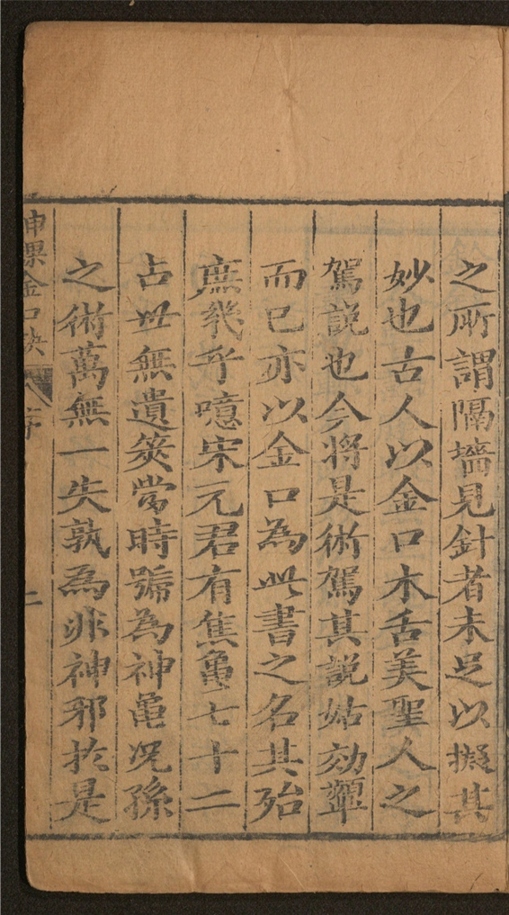 之所謂隔墻見針者未足以擬其
妙也古人以金口木舌美聖人之
駕説也今将是術駕其説姑効顰
而已亦以金口為此書之名其殆
庶幾乎噫宋元君有焦龜七十二
占丗無遺筴當時號為神龜况孫
之術萬無一失孰為非神邪扵是
神課金口訣 序 二